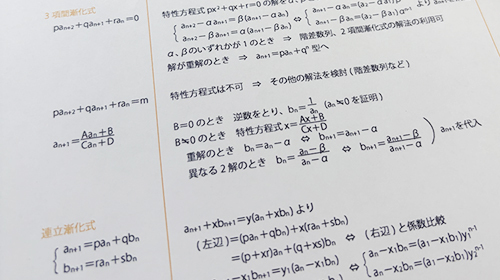 3項間漸化式
pan+2+qan+1+ran=0
特性方程式 px²+qx+r=0の解を
an+2−αan+1=β(an+1−αan)
an+2−βan+1=α(an+1−βan)
an+1−βan=(a2−βa1)αⁿ⁻¹ より
α、βのいずれかが1のとき ⇒ 階差数列、2項間漸化式の解法の利用可
解が重解のとき ⇒ an+1=pan+qⁿ 型へ
pan+2+qan+1+ran=m
特性方程式は不可 ⇒ その他の解法を検討(階差数列など)
an+1=Aan+B/Can+D
B=0のとき 逆数をとり、bn=1/an (an≒0を証明)
B≒0のとき 特性方程式x=Ax+B/Cx+D
重解のとき bn=an−α ⇔ bn+1=an+1−α
異なる2解のとき bn=an−β/an−α ⇔ bn+1=an+1−β/an+1−α
an+1を代入
連立漸化式
an+1=pan+qbn
bn+1=ran+sbn
an+1+xbn+1=y(an+xbn) より
(左辺)=(pan+qbn)+x(ran+sbn)
=(p+xr)an+(q+xs)bn ⇔ (右辺)と係数比較
−x1bn+1=y1(an−x1bn)
an−x1bn=(a1−x1b1)y1ⁿ⁻¹